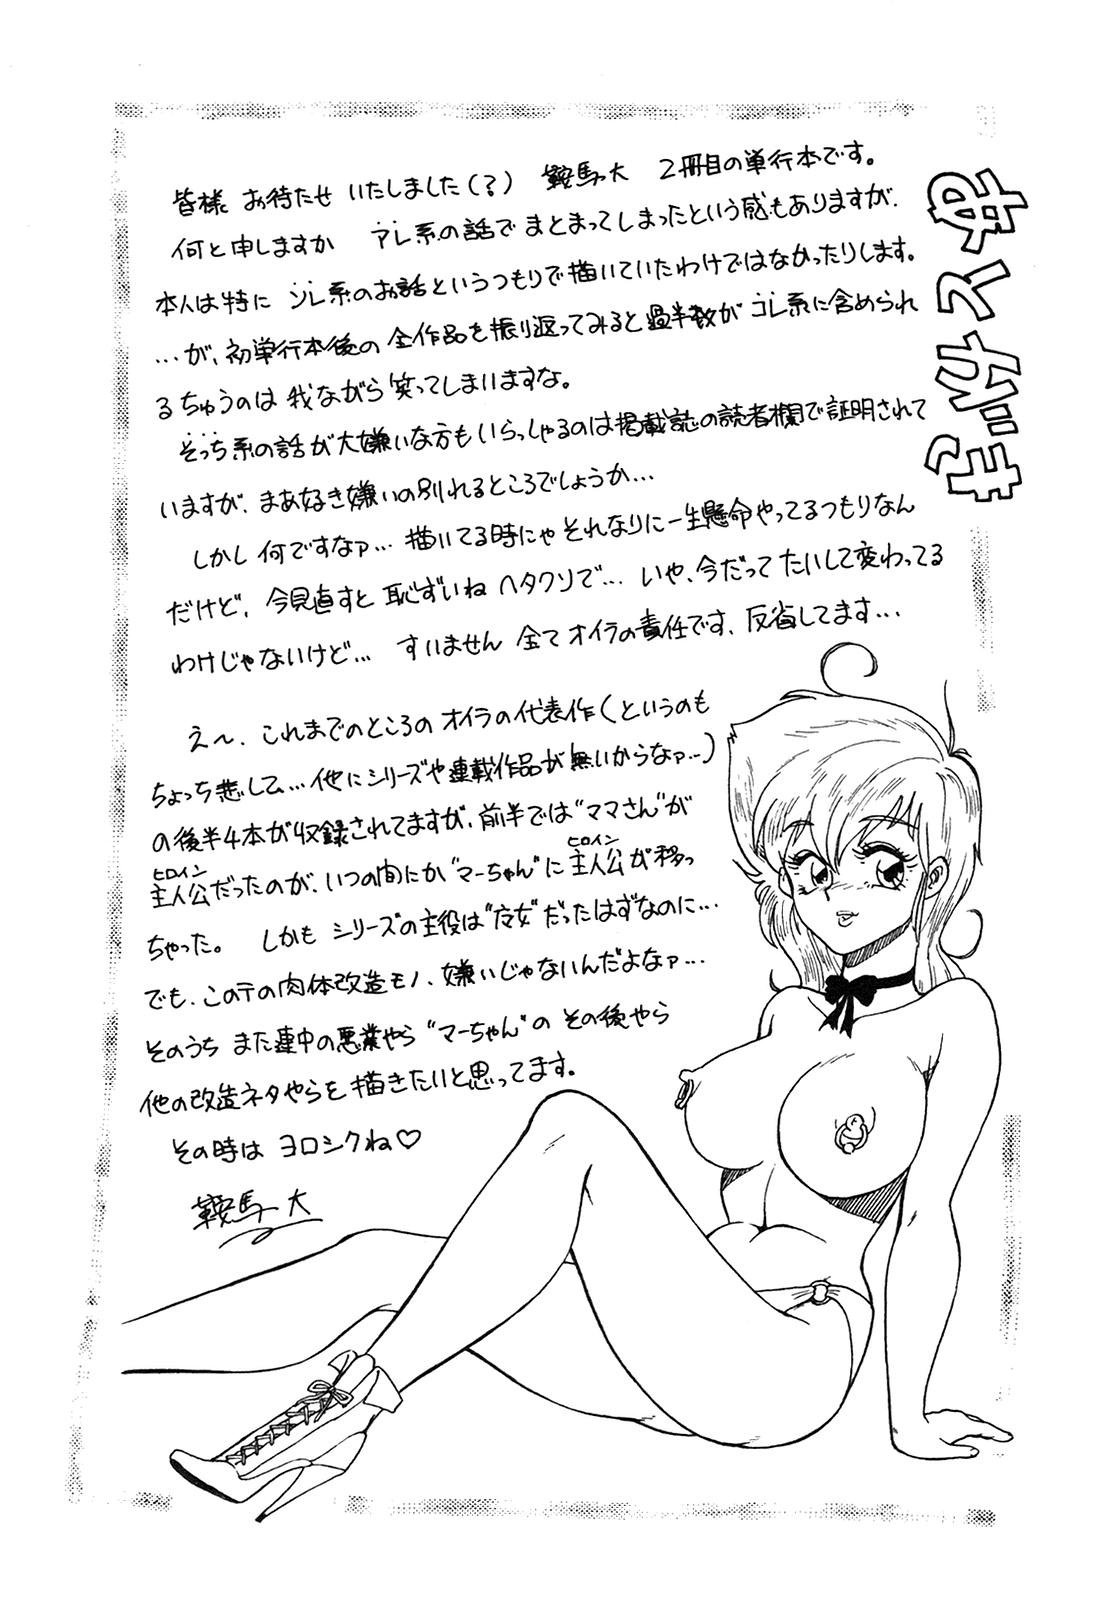 ぎブサスゆ
皆様 お待たせ いたしました(?) 鞍馬大 2冊目の単行本です。
何と申しますか アレ系の話で まとまってしまったという感もありますが、
本人は特に ソレ系のお話というつもりで描いていたわけではなかったりします。
…が、初単行本後の 全作品を振り返ってみると過半数が コレ系に含められ
るちゅうのは 我ながら 笑ってしまいますな。
そっち系の話が大嫌いな方も いらっしゃるのは掲載誌の読者欄で証明されて
いますが、まあ好き嫌いの別れるところでしょうか…
しかし 何ですなァ… 描いてる時にゃ それなりに一生懸命やってるつもりなん
だけど、今見直すと 恥ずいね ヘタクソで… いや、今だって たいして変わってる
わけじゃないけど… すいません 全て オイラの責任です、反省してます…
え〜、これまでのところの オイラの代表作(というのも
ちょっち悲して…他にシリーズや連載作品が無いからなァ…)
の後半4本が収録されてますが、前半では“ママさん”が
主人公(ヒロイン)だったのが、いつの間にか“マーちゃん”に 主人公(ヒロイン)が移っ
ちゃった。 しかも シリーズの主役は だったはずなのに…
でも、このテの肉体改造モノ、嫌いじゃないんだよなァ…
そのうち また連中の悪業やら “マーちゃん”の その後やら
他の改造ネタやらを 描きたいと思ってます。
その時は ヨロシクね♡
鞍馬 大